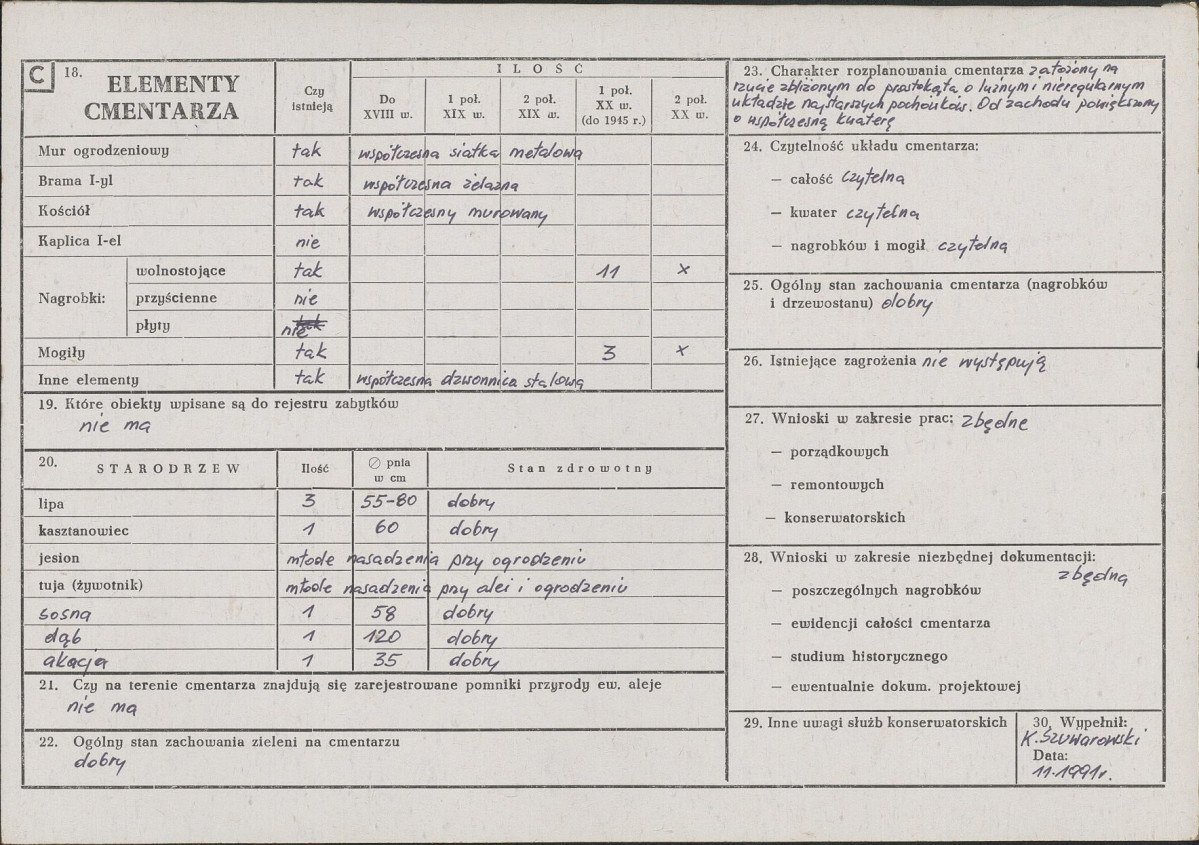 C 18. ELEMENTY CMENTARZA
Czy istnieją
ILOŚĆ
Do XVIII w.
1 poł. XIX w.
2 poł. XIX w.
1 poł. XX w. (do 1945 r.)
2 poł. XX w.
Mur ogrodzeniowy tak współczesna siatka metalowa
Brama I-yl tak współczesna żelazna
Kościół tak współczesny murowany
Kaplica I-el nie
Nagrobki:
wolnostojące tak 11 x
przyścienne nie
płyty tak nie
Mogiły tak 3 x
Inne elementy tak współczesna dzwonnica stalowa
19. Które obiekty wpisane są do rejestru zabytków
nie ma
20. STARODRZEW Ilość ∅ pnia w cm Stan zdrowotny
lipa 3 55-80 dobry
kasztanowiec 1 60 dobry
jesion młode nasadzenia przy ogrodzeniu
tuja (żywotnik) młode nasadzenia przy alei i ogrodzeniu
sosna 1 58 dobry
dąb 1 120 dobry
akacja 1 35 dobry
21. Czy na terenie cmentarza znajdują się zarejestrowane pomniki przyrody ew. aleje
nie ma
22. Ogólny stan zachowania zieleni na cmentarzu
dobry
23. Charakter rozplanowania cmentarza założony na
rzucie zbliżonym do prostokąta o luźnym i nieregularnym
układzie najstarszych pochówków. Od zachodu powiększony
o współczesną kwaterę
24. Czytelność układu cmentarza:
— całość czytelna
— kwater czytelna
— nagrobków i mogił czytelna
25. Ogólny stan zachowania cmentarza (nagrobków
i drzewostanu) dobry
26. Istniejące zagrożenia nie występują
27. Wnioski w zakresie prac: zbędne
— porządkowych
— remontowych
— konserwatorskich
28. Wnioski w zakresie niezbędnej dokumentacji:
zbędna
— poszczególnych nagrobków
— ewidencji całości cmentarza
— studium historycznego
— ewentualnie dokum. projektowej
29. Inne uwagi służb konserwatorskich
30, Wypełnił:
K. Szuwarowski
Data:
11.1991r.